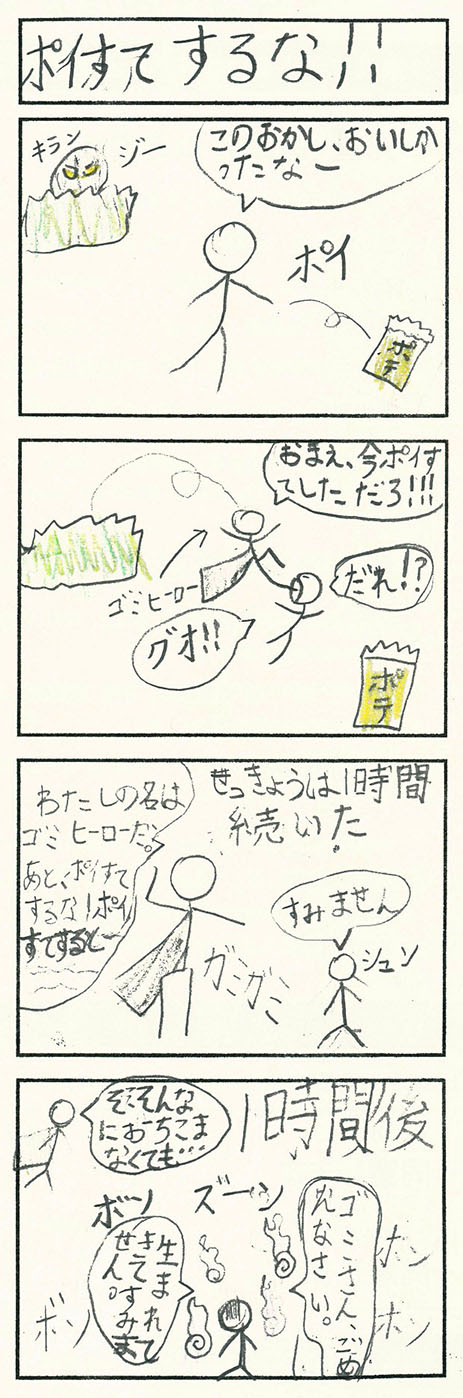 ポイすてするな!!
キラン
ジー
このおかし、おいしか
ったなー
ポイ
ポテ
おまえ、今ポイす
てしただろ!!!
だれ!?
ゴミヒーロー
グオ!!
ポテ
せっきょうは1時間
続いた
わたしの名は
ゴミヒーローだ。
あと、ポイすて
するな!ポイ
すてするとー
すみません
シュン
ガミガミ
1時間後
そ、そんな
におちこま
なくても…
ズーン
ボソ
ゴミさん、ごめ
んなさい。
生まれて
きてすみま
せん。
ボソ